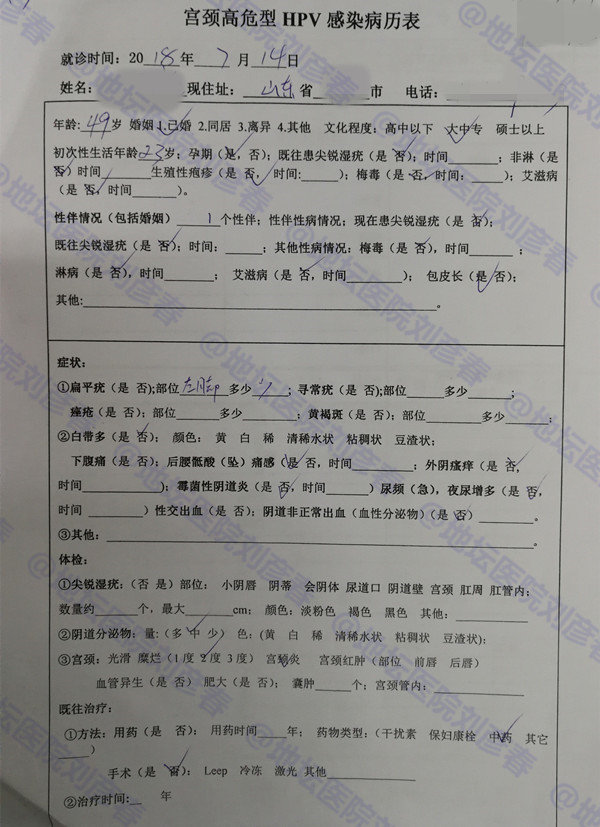 宫颈高危型 HPV 感染病历表
就诊时间：2018年 7 月 14日
姓名： 现住址：山东 省 市 电话：
年龄：49岁 婚姻 1.已婚 2.同居 3.离异 4.其他 文化程度：高中以下 大中专 硕士以上
初次性生活年龄23岁；孕期（是，否）；既往患尖锐湿疣（是 否）；时间______；非淋（是
否）时间______生殖性疱疹（是 否，时间:_____）；梅毒（是 否，时间：____）；艾滋病
（是 否，时间______）。
性伴情况（包括婚姻）___1___个性伴；性伴性病情况；现在患尖锐湿疣（是 否）；
既往尖锐湿疣（是 否）；时间：_____；其他性病情况：梅毒（是 否），时间______；
淋病（是 否），时间_______； 艾滋病（是 否，时间________）； 包皮长（是 否）；
其他:______________________________。
症状：
①扁平疣（是 否）；部位左脚多少 ；寻常疣（是 否）;部位_____多少_____；
痤疮（是 否）；部位______多少_______；黄褐斑（是 否）；部位________多少_____；
②白带多（是 否）； 颜色： 黄 白 稀 清稀水状 粘稠状 豆渣状；
下腹痛（是 否）；后腰骶酸（坠）痛感（是 否，时间________；外阴瘙痒（是 否，
时间__________）；霉菌性阴道炎（是 否，时间______）尿频（急），夜尿增多（是 否，
时间________）性交出血（是 否）；阴道非正常出血（血性分泌物）（是 否）________。
③其他：______________________________。
体检：
①尖锐湿疣：（否 是）部位： 小阴唇 阴蒂 会阴体 尿道口 阴道壁 宫颈 肛周 肛管内；
数量约______个，最大_______cm； 颜色：淡粉色 褐色 黑色 其他：__________
②阴道分泌物；量:（多 中 少） 色：（黄 白 稀 清稀水状 粘稠状 豆渣状)；
③宫颈：光滑 糜烂（1 度 2 度 3 度） 宫颈炎 宫颈红肿（部位 前唇 后唇）
血管异生（是 否） 肥大（是 否）； 囊肿_____个；宫颈管内：__________
既往治疗：
①方法：用药（是 否）： 用药时间____年； 药物类型：（干扰素 保妇康栓 中药 其它
____）
手术（是 否）： Leep 冷冻 激光 其他____________
②治疗时间:__ 年
@地坛医院刘彦春